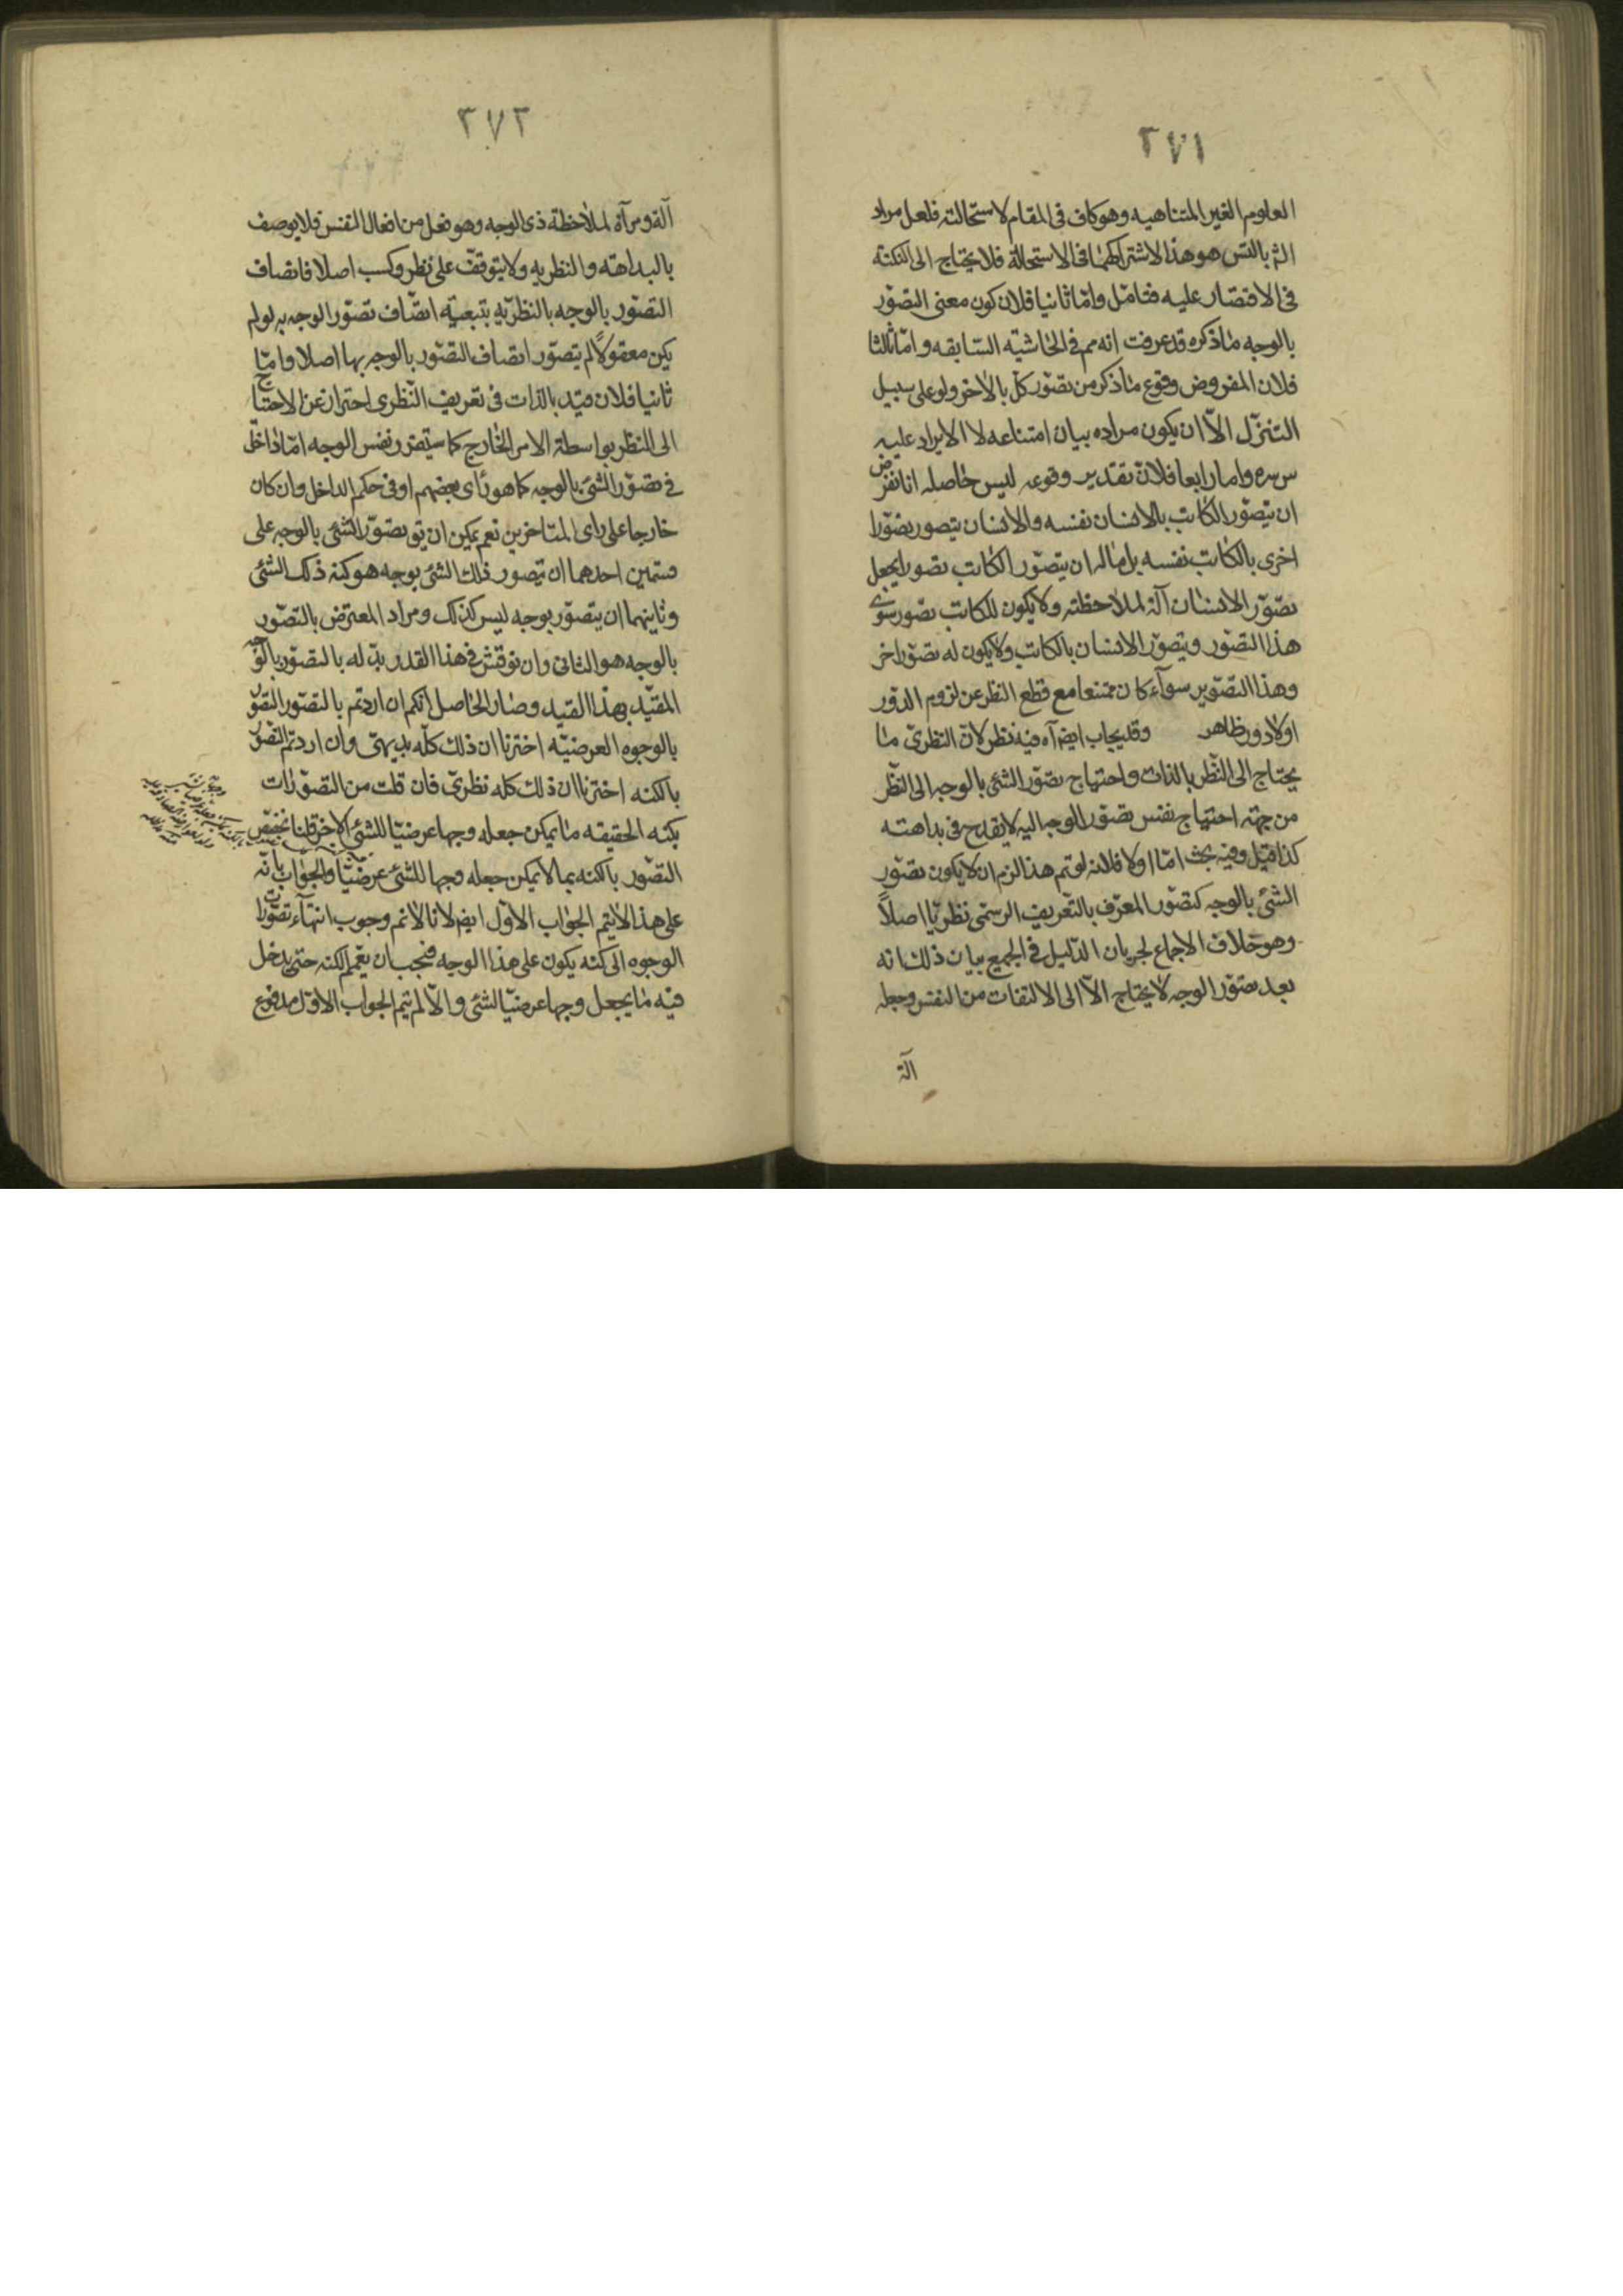 ٢٧١
العلوم الغير المتناهيه وهو كاف فى المقام لاستحالته فلعل مراد
الش بالتس هو هذا لاشتراكهما فى الاستحالة فلا يحتاج الى النكتة
فى الاقتصار عليه فتامّل وامّا ثانيا فلان كون معنى التصوّر
بالوجه ما ذكره قد عرفت انه مم فى الحاشية السّابقه وامّا ثالثا
فلان المفروض وقوع ما ذكر من تصوّر كلّ بالاخر ولو على سبيل
التنزّل الاّ ان يكون مراده بيان امتناعه لا الايراد عليه
س سره واما رابعا فلانّ تقدير وقوعه ليس حاصله انا نفرض
ان يتصوّر الكاتب بالانسان نفسه والانسان يتصور تصوّرا
اخرى بالكاتب نفسه بل ماله ان يتصوّر الكاتب تصورا يجعل
تصوّر الانسان آلة لملاحظته ولا يكون للكاتب تصور سوى
هذا التصوّر ويتصوّر الانسان بالكاتب ولا يكون له تصوّر اخر
وهذا التصوير سوآء كان ممتنعا مع قطع النظر عن لزوم الدّور
اولا دور ظاهر وقد يجاب ايضا آه فيه نظر لانّ النظرىّ ما
يحتاج الى النّظر بالذات واحتياج تصوّر الشئ بالوجه الى النّظر
من جهة احتياج نفس تصوّر الوجه اليه لا يقدح فى بداهته
كذا قيل وفيه بحث امّا اولا فلانه لو تم هذا لزم ان لا يكون تصوّر
الشئ بالوجه كتصوّر المعرّف بالتّعريف الرسمّى نظريّا اصلاً
وهو خلاف الاجماع لجريان الدّليل فى الجميع بيان ذلك انه
بعد تصوّر الوجه لا يحتاج الاّ الى الالتفات من النفس وجعله
آلة
٢٧٢
آلة ومرآة لملاحظة ذى الوجه وهو فعل من افعال النفس فلا يوصف
بالبداهته والنظريه ولا يتوقف على نظر وكسب اصلا فاتصاف
التصوّر بالوجه بالنظريّه بتبعيّة اتصّاف تصوّر الوجه به لو لم
يكن معقولاً لم يتصوّر اتصاف التصّور بالوجه بها اصلا وامّا
ثانيا فلان قيد بالذات فى تعريف النّظرى احتراز عن الاحتياج
الى النظر بواسطة الامر الخارج كما سيتقرر ونفس الوجه امّا داخل
فى تصوّر الشئ بالوجه كما هو رأى بعضهم او فى حكم الداخل وان كان
خارجا على راى المتاخرين نعم يمكن ان يق تصوّر الشئ بالوجه على
قسمين احدهما ان يتصور ذلك الشئ بوجه هو كنه ذلك الشئ
وثانيهما ان يتصوّر بوجه ليس كذلك ومراد المعترض بالتصوّر
بالوجه هو الثانى وان نوقش فى هذا القدر بدّله بالتصوّر بالوجه
المقيّد بهذا القيد وصار الحاصل انكم ان اردتم بالتصوّر التصوّر
بالوجوه العرضيّه اخترنا ان ذلك كلّه بديهىّ وان اردتم التصوّر
بالكنه اخترنا ان ذلك كله نظرىّ فان قلت من التصوّرات
بكنه الحقيقه ما يمكن جعله وجها عرضيّا للشئ الاخر قلنا نخصّص
التصّور بالكنه بما لا يمكن جعله وجها للشئ عرضيّا والجواب بانّه
على هذا لا يتم الجواب الاوّل ايض لانا لا نم وجوب انتهآء تصوّرات
الوجوه الى كنه يكون على هذا الوجه فيجب ان يعّمم الكنه حتى يدخل
فيه ما يجعل وجها عرضيّا لشئ والاّ لم يتم الجواب الاوّل مدفوع